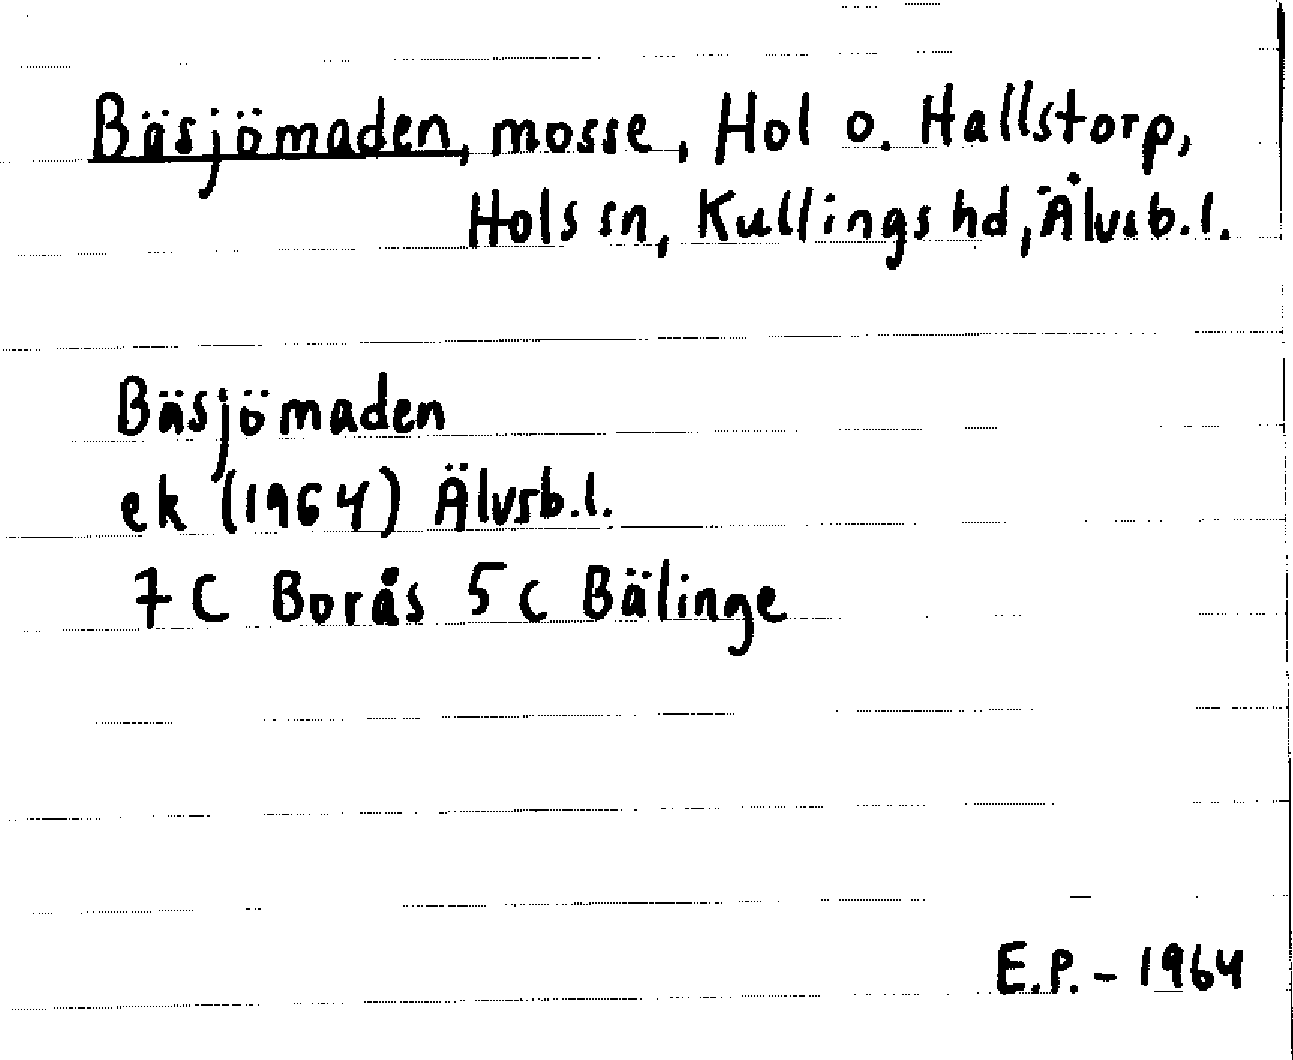 Bäsjömaden, mosse, Hol o. Hallstorp,
Hols sn, Kullings hd, Älvsb.l.
Bäsjömaden
ek (1964) Älvsb.l.
7 C Borås 5 c Bälinge
E.P. - 1964